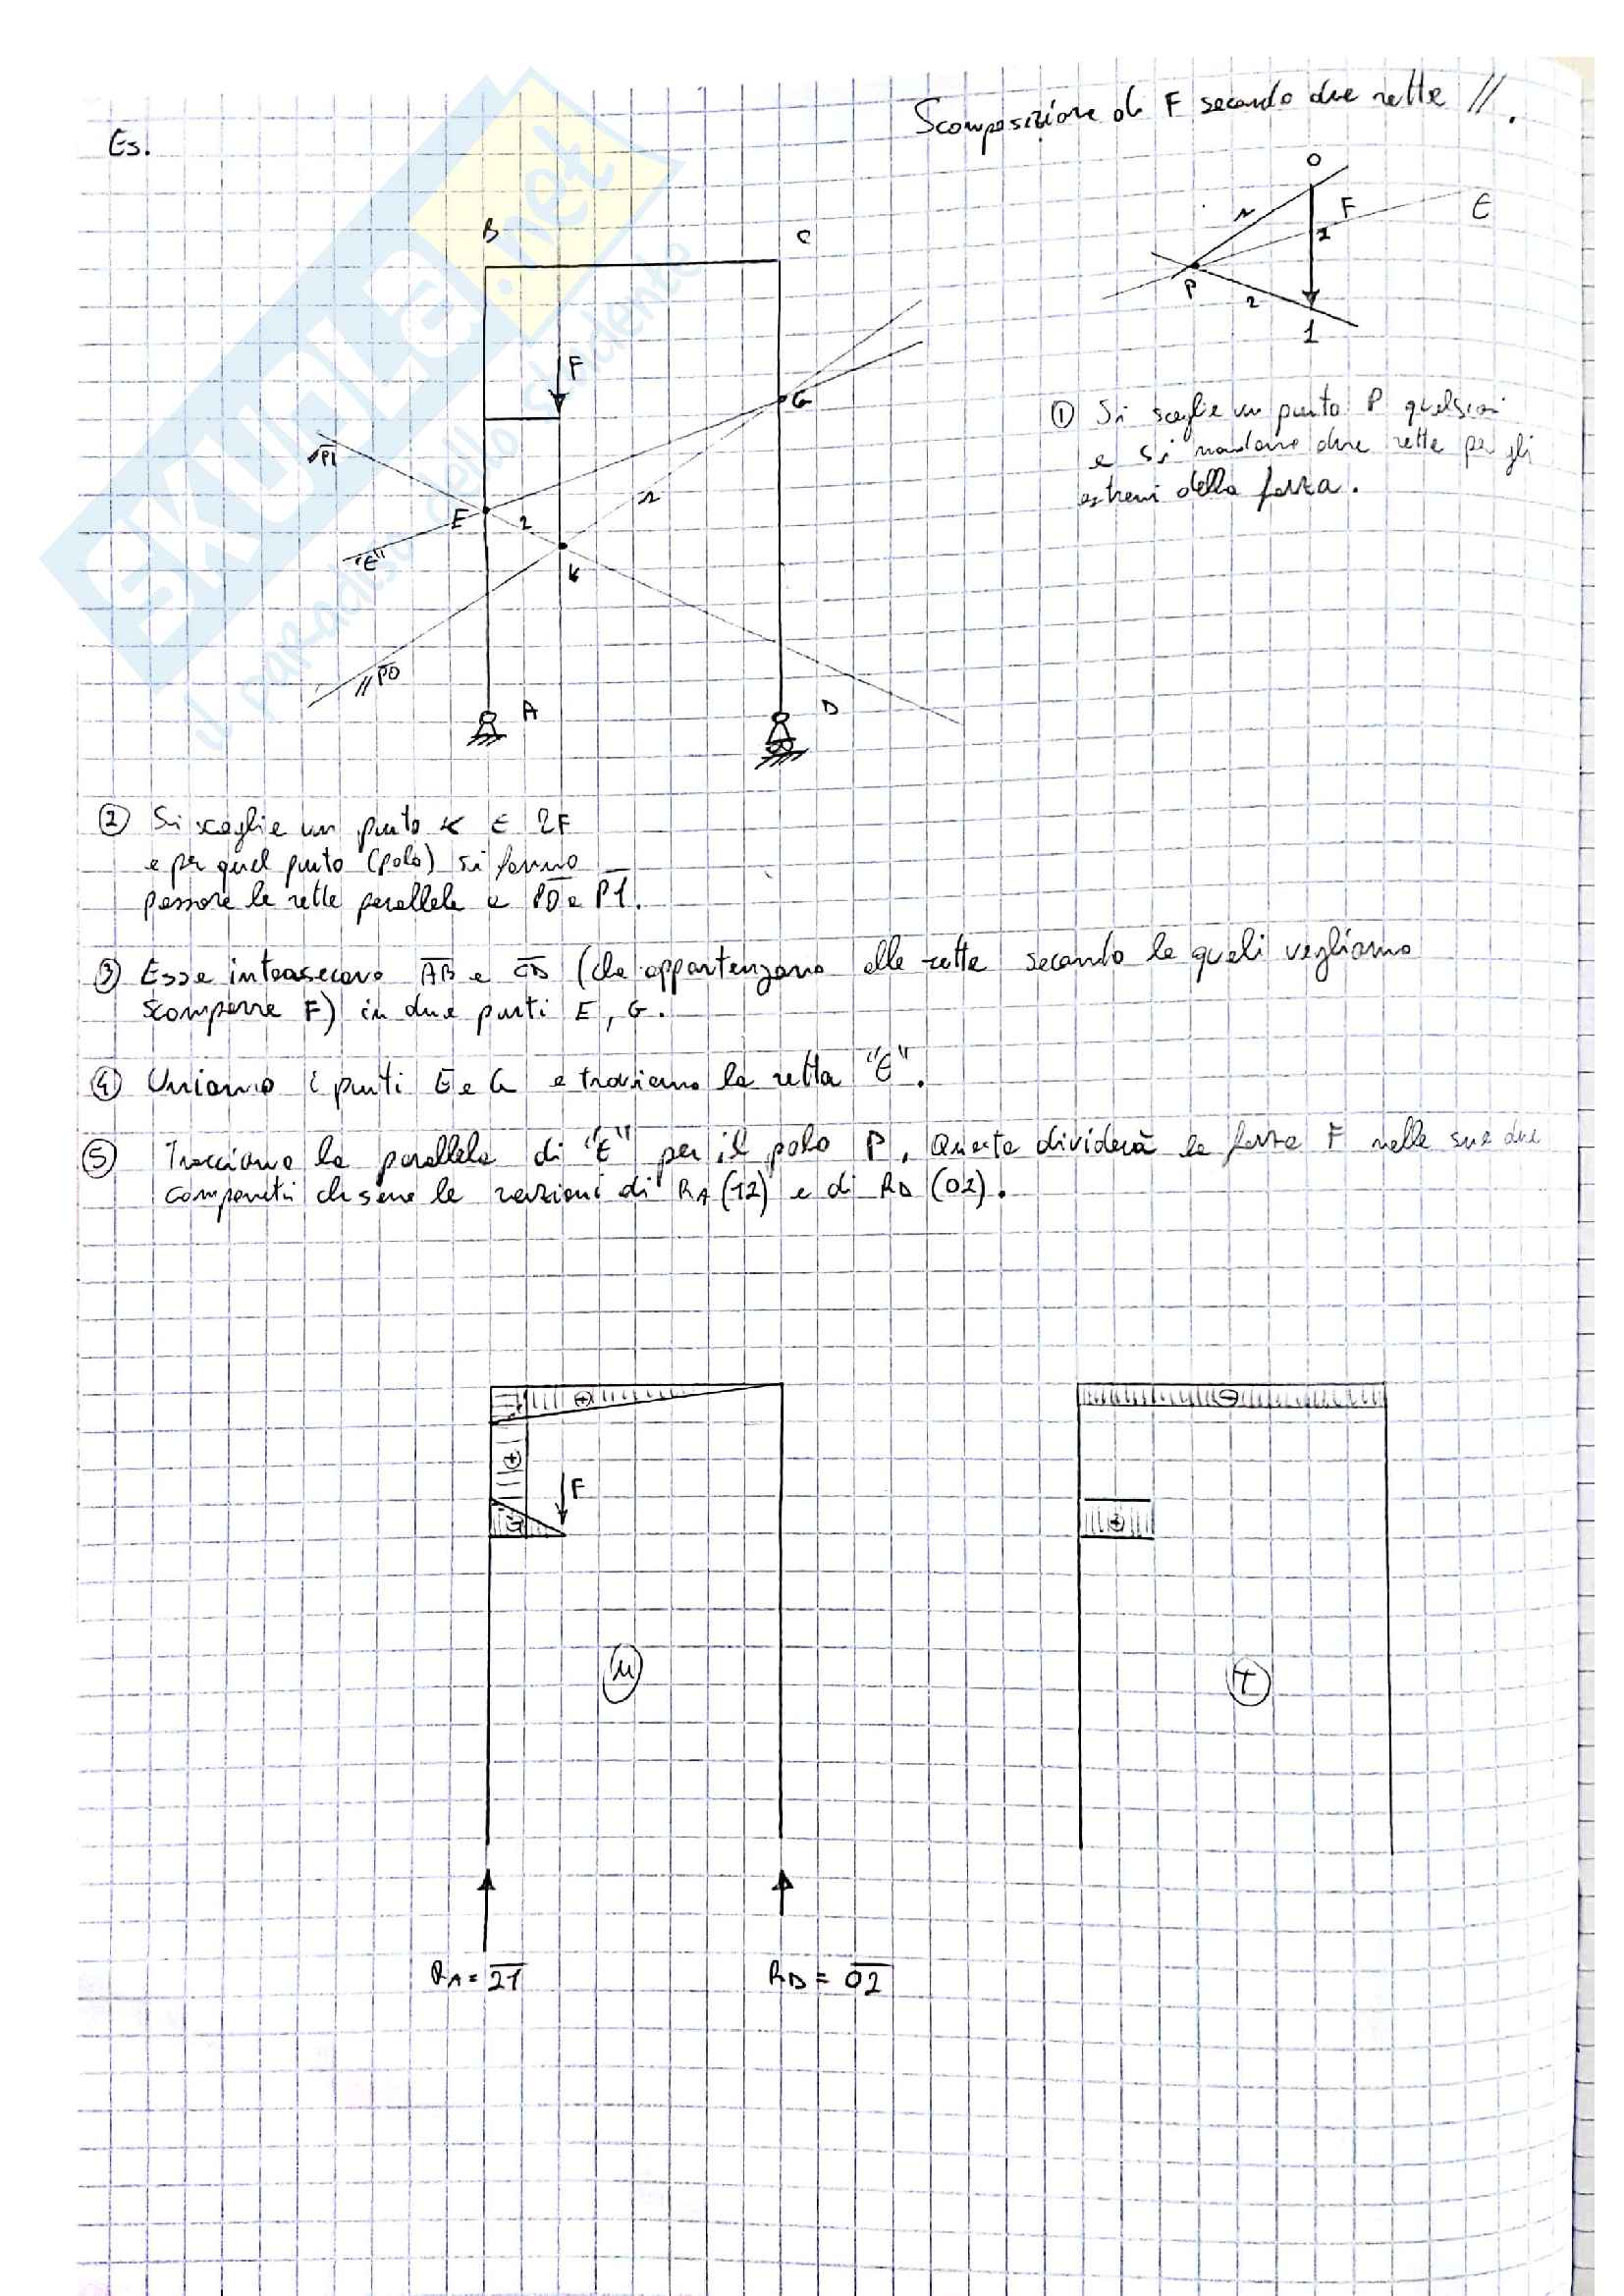 Es.
Scomposizione di F secondo due rette //.
O
r
F
E
2
P
2
1
B
C
F
① Si sceglie un punto P qualsiasi
e si mandano due rette per gli
estremi della forza.
G
// P1
r
E
2
"E"
K
// PO
A
D
② Si sceglie un punto K ∈ rF
e per quel punto (polo) si fanno
passare le rette parallele a PO e P1.
③ Esse intersecano AB e CD (che appartengono alle rette secondo le quali vogliamo
scomporre F) in due punti E, G.
④ Uniamo i punti E e G e troviamo la retta "E".
⑤ Tracciamo la parallela di "E" per il polo P. Questa dividerà la forza F nelle sue due
componenti che sono le reazioni di RA (12) e di RD (02).
+
-
+
F
+
M
t
RA = 21
RD = 02
SKUOLA.net
il paradiso dello studente